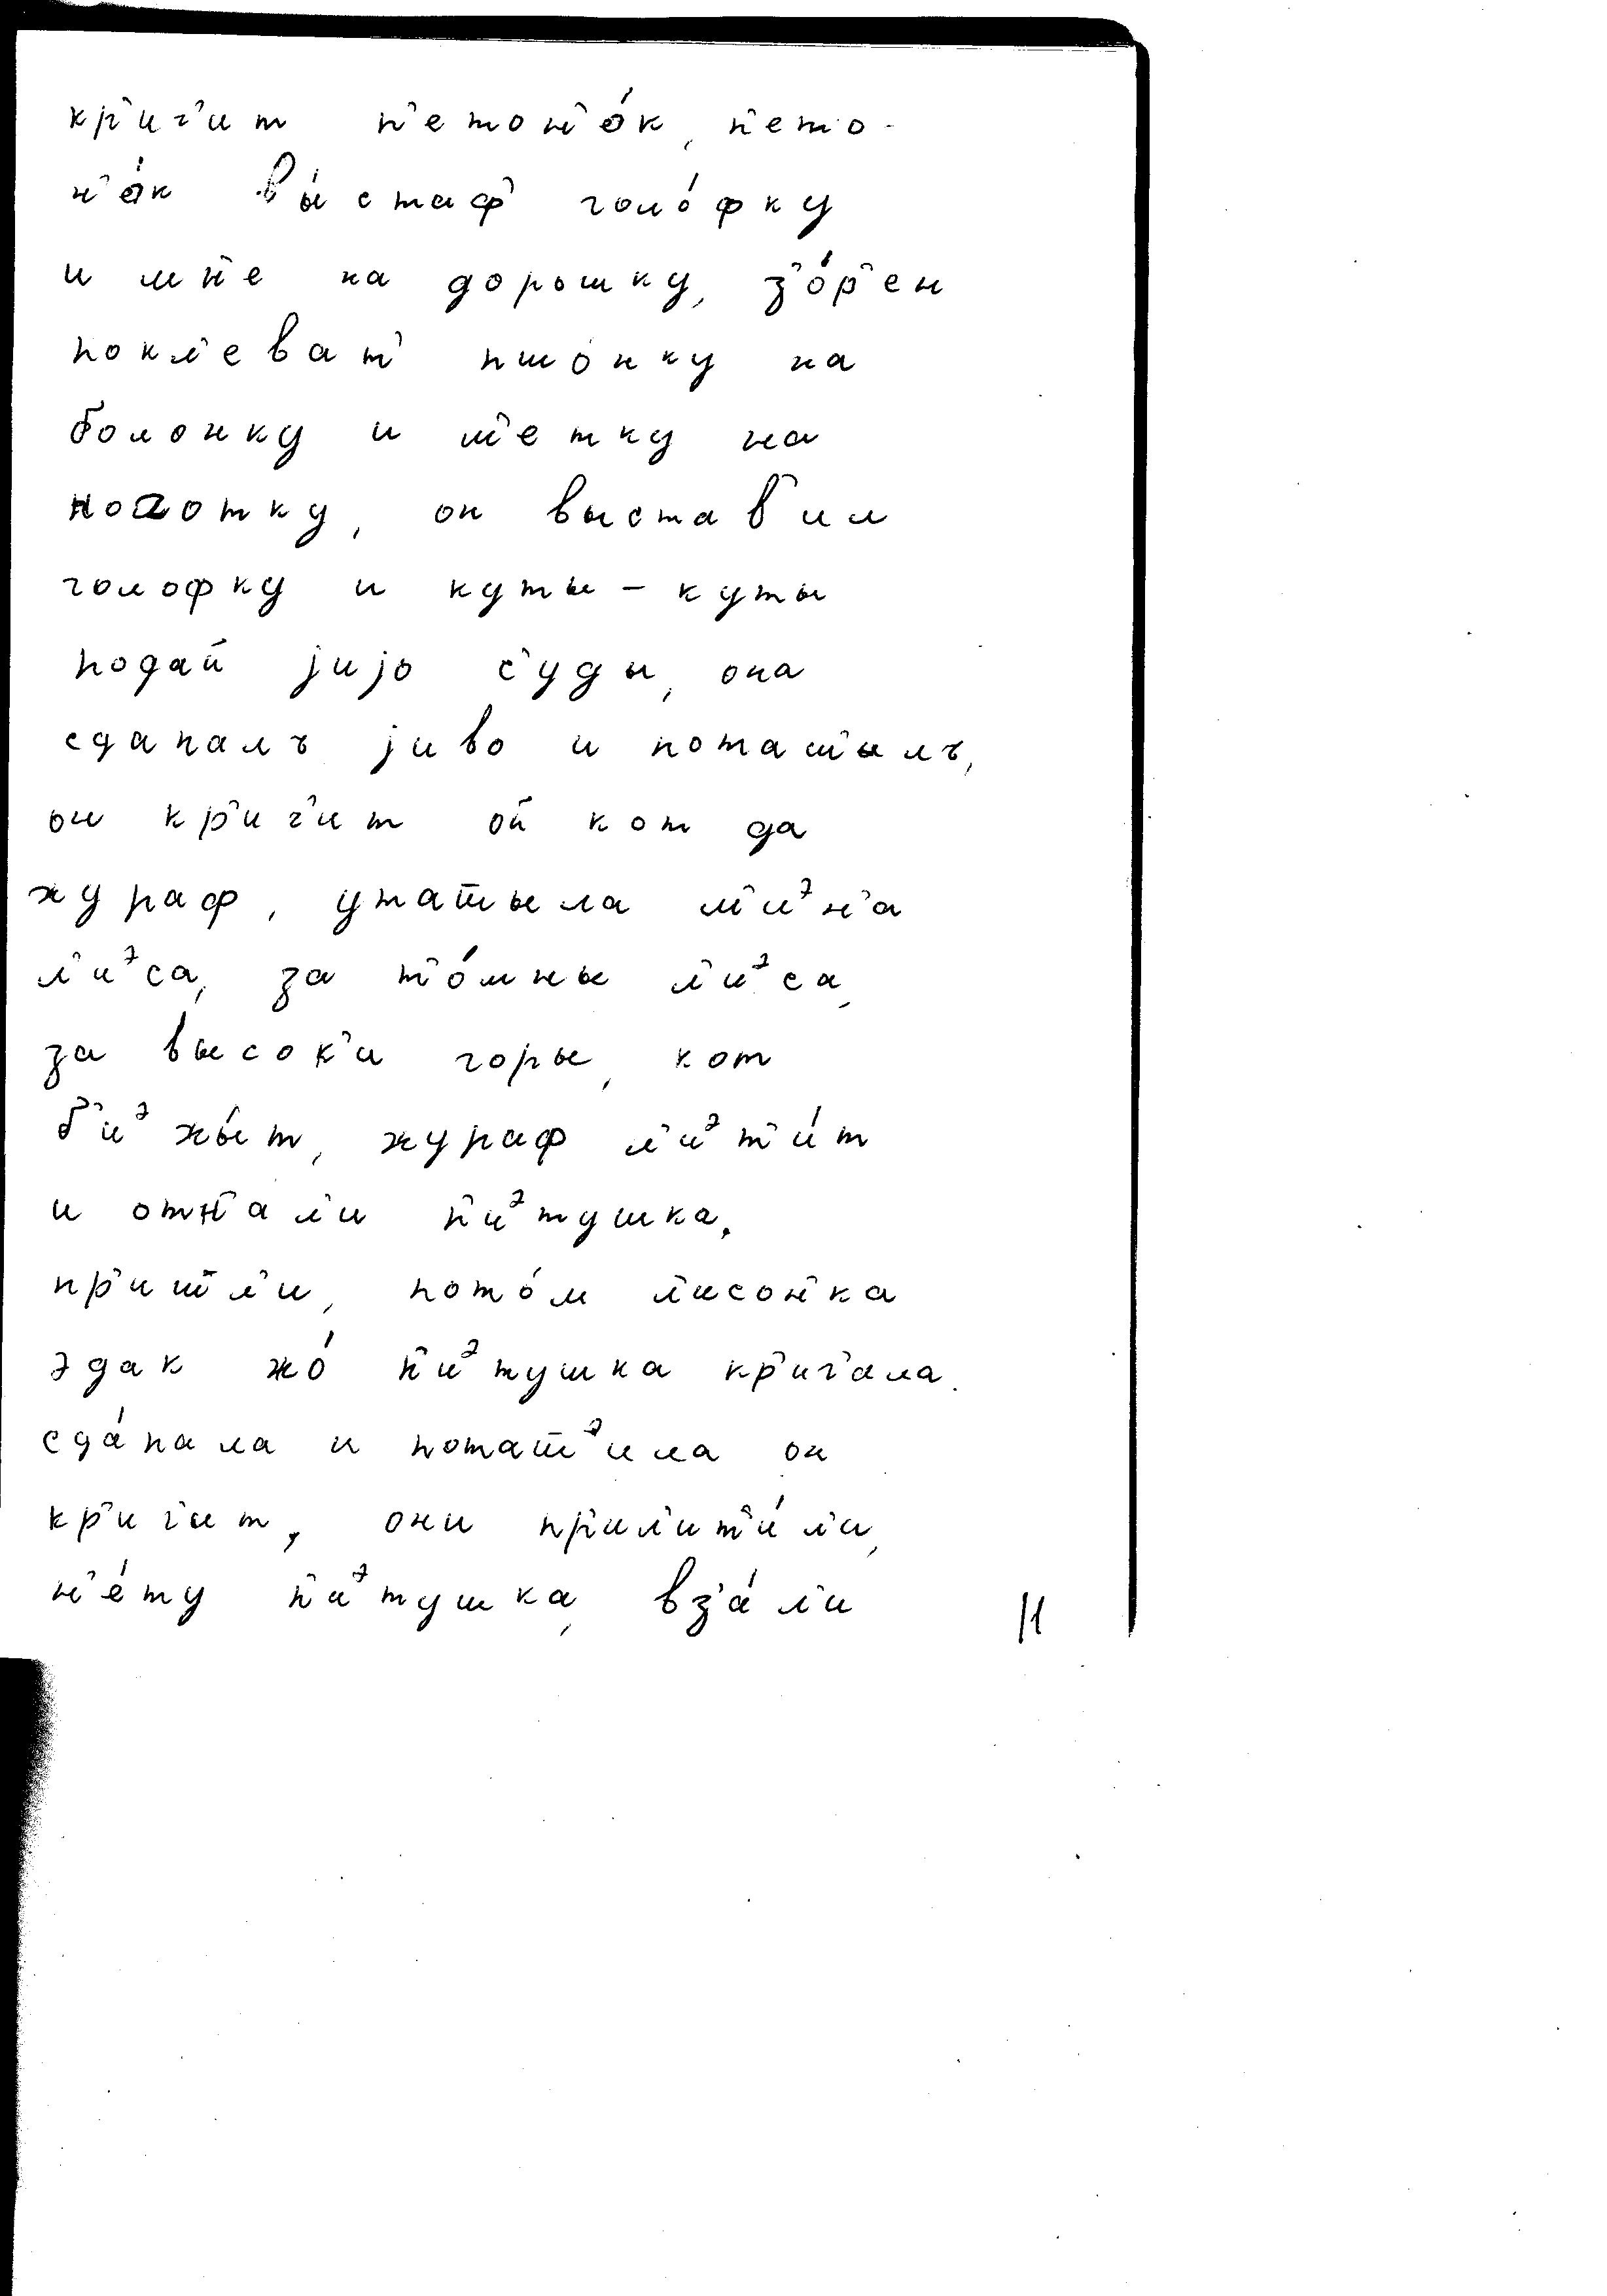 кр'ич'ит п'етон'о́к, п'ето-
н'о́к вы́стаф' голо́фку
и мн'е на дорошку, з'о́р'ен
покл'еват' пшонку на
болонку и т'етку на
пологку, он выстав'ил
голофку и куты - куты
подай jиjо с'уды, она
сцапалъ jиво и поташ'ылъ,
он кр'ич'ит ой кот да
жураф, уташ'ыла м'иэн'а
л'иэса, за т'о́мны л'иэса,
за высок'и горы, кот
б'иэжы́т, жураф л'иэт'и́т
и отн'ал'и п'иэтушка.
пр'ишл'и, пото́м л'исон'ка
эдак жо́ п'иэтушка кр'ич'ала.
сца́пала и поташ'иэла он
кр'ич'ит, они пр'ил'ит'и́л'и,
н'е́ту п'иэтушка, вз'а́л'и
11